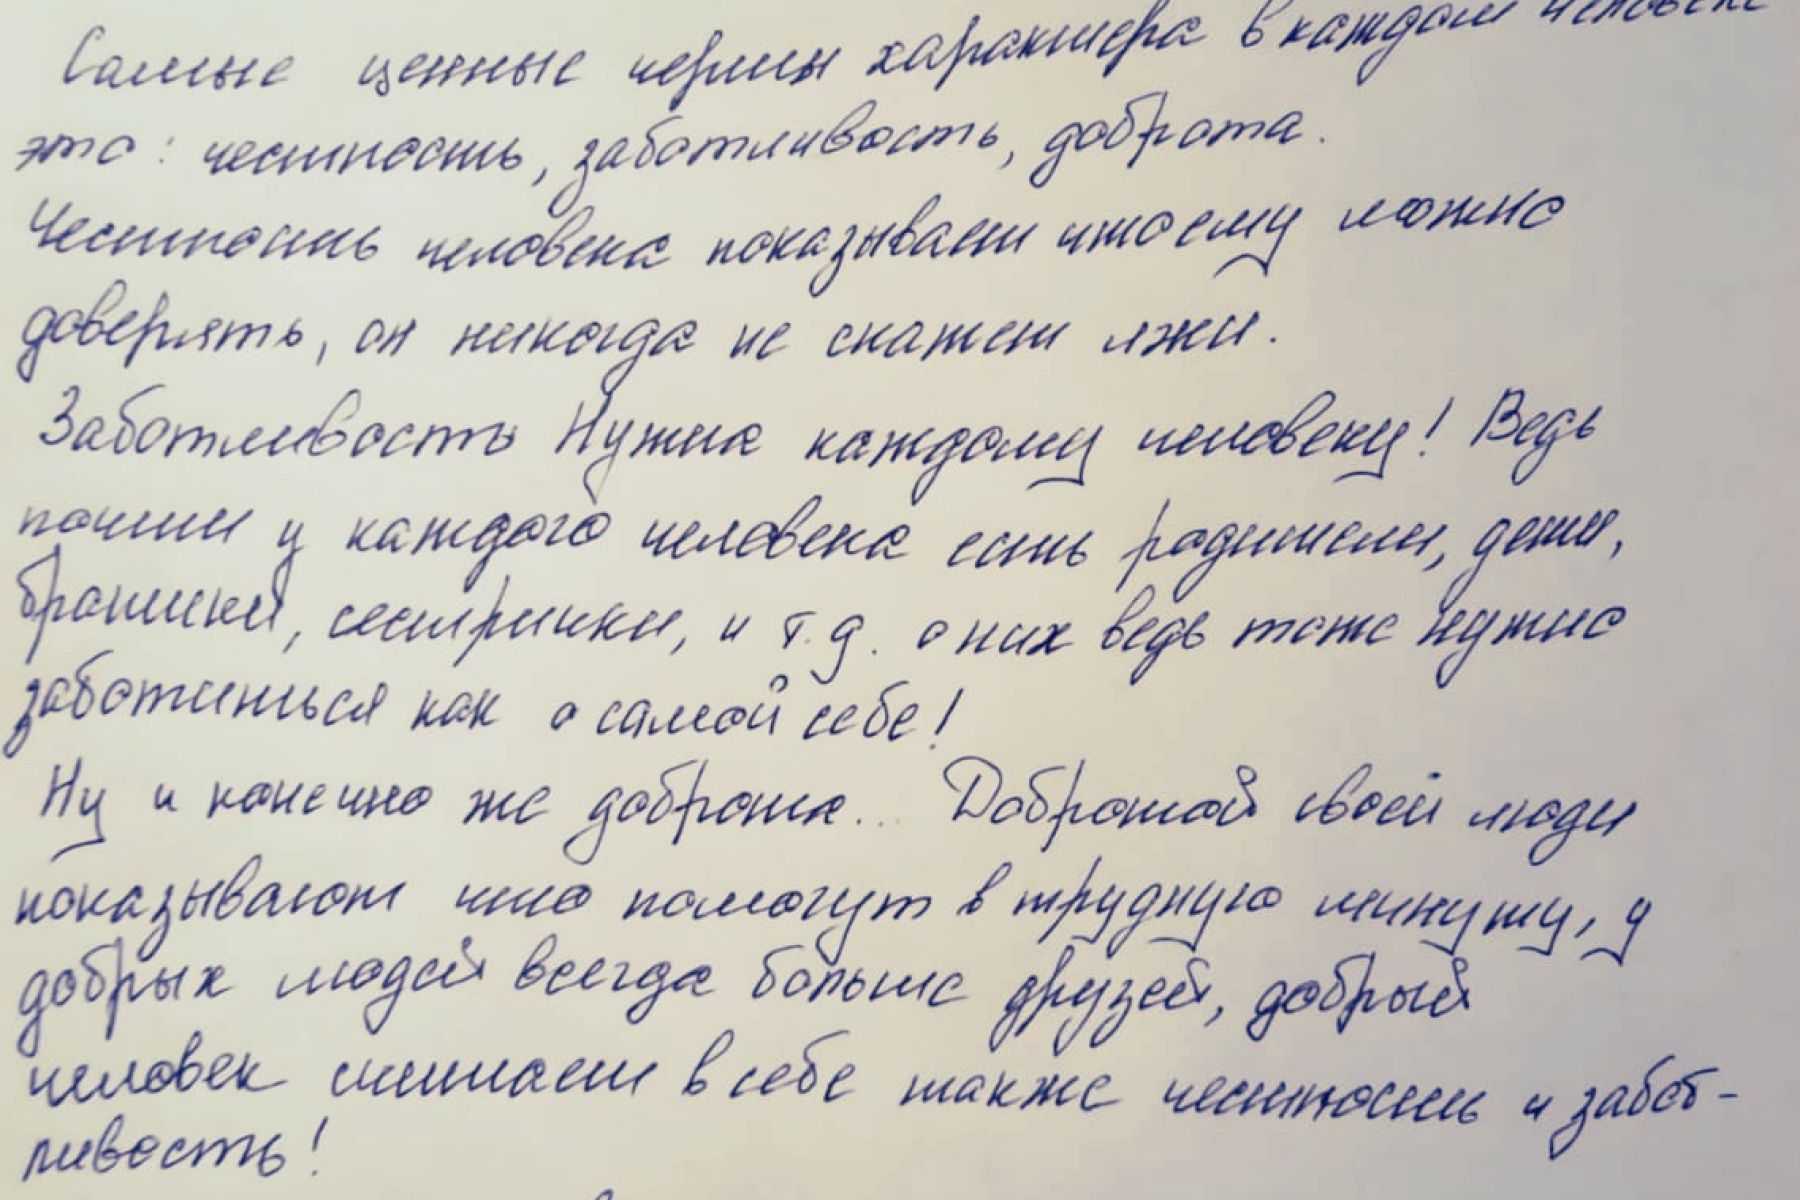 Самые ценные черты характера в каждом человеке
это: честность, заботливость, доброта.
Честность человека показывает что ему можно
доверять, он никогда не скажет лжи.
Заботливость Нужна каждому человеку! Ведь
почти у каждого человека есть родители, дети,
братики, сестрички, и т.д. о них ведь тоже нужно
заботиться как о самой себе!
Ну и конечно же доброта... Добротой своей люди
показывают что помогут в трудную минуту, у
добрых людей всегда больше друзей, добрый
человек сочетает в себе также честность и забот-
ливость!